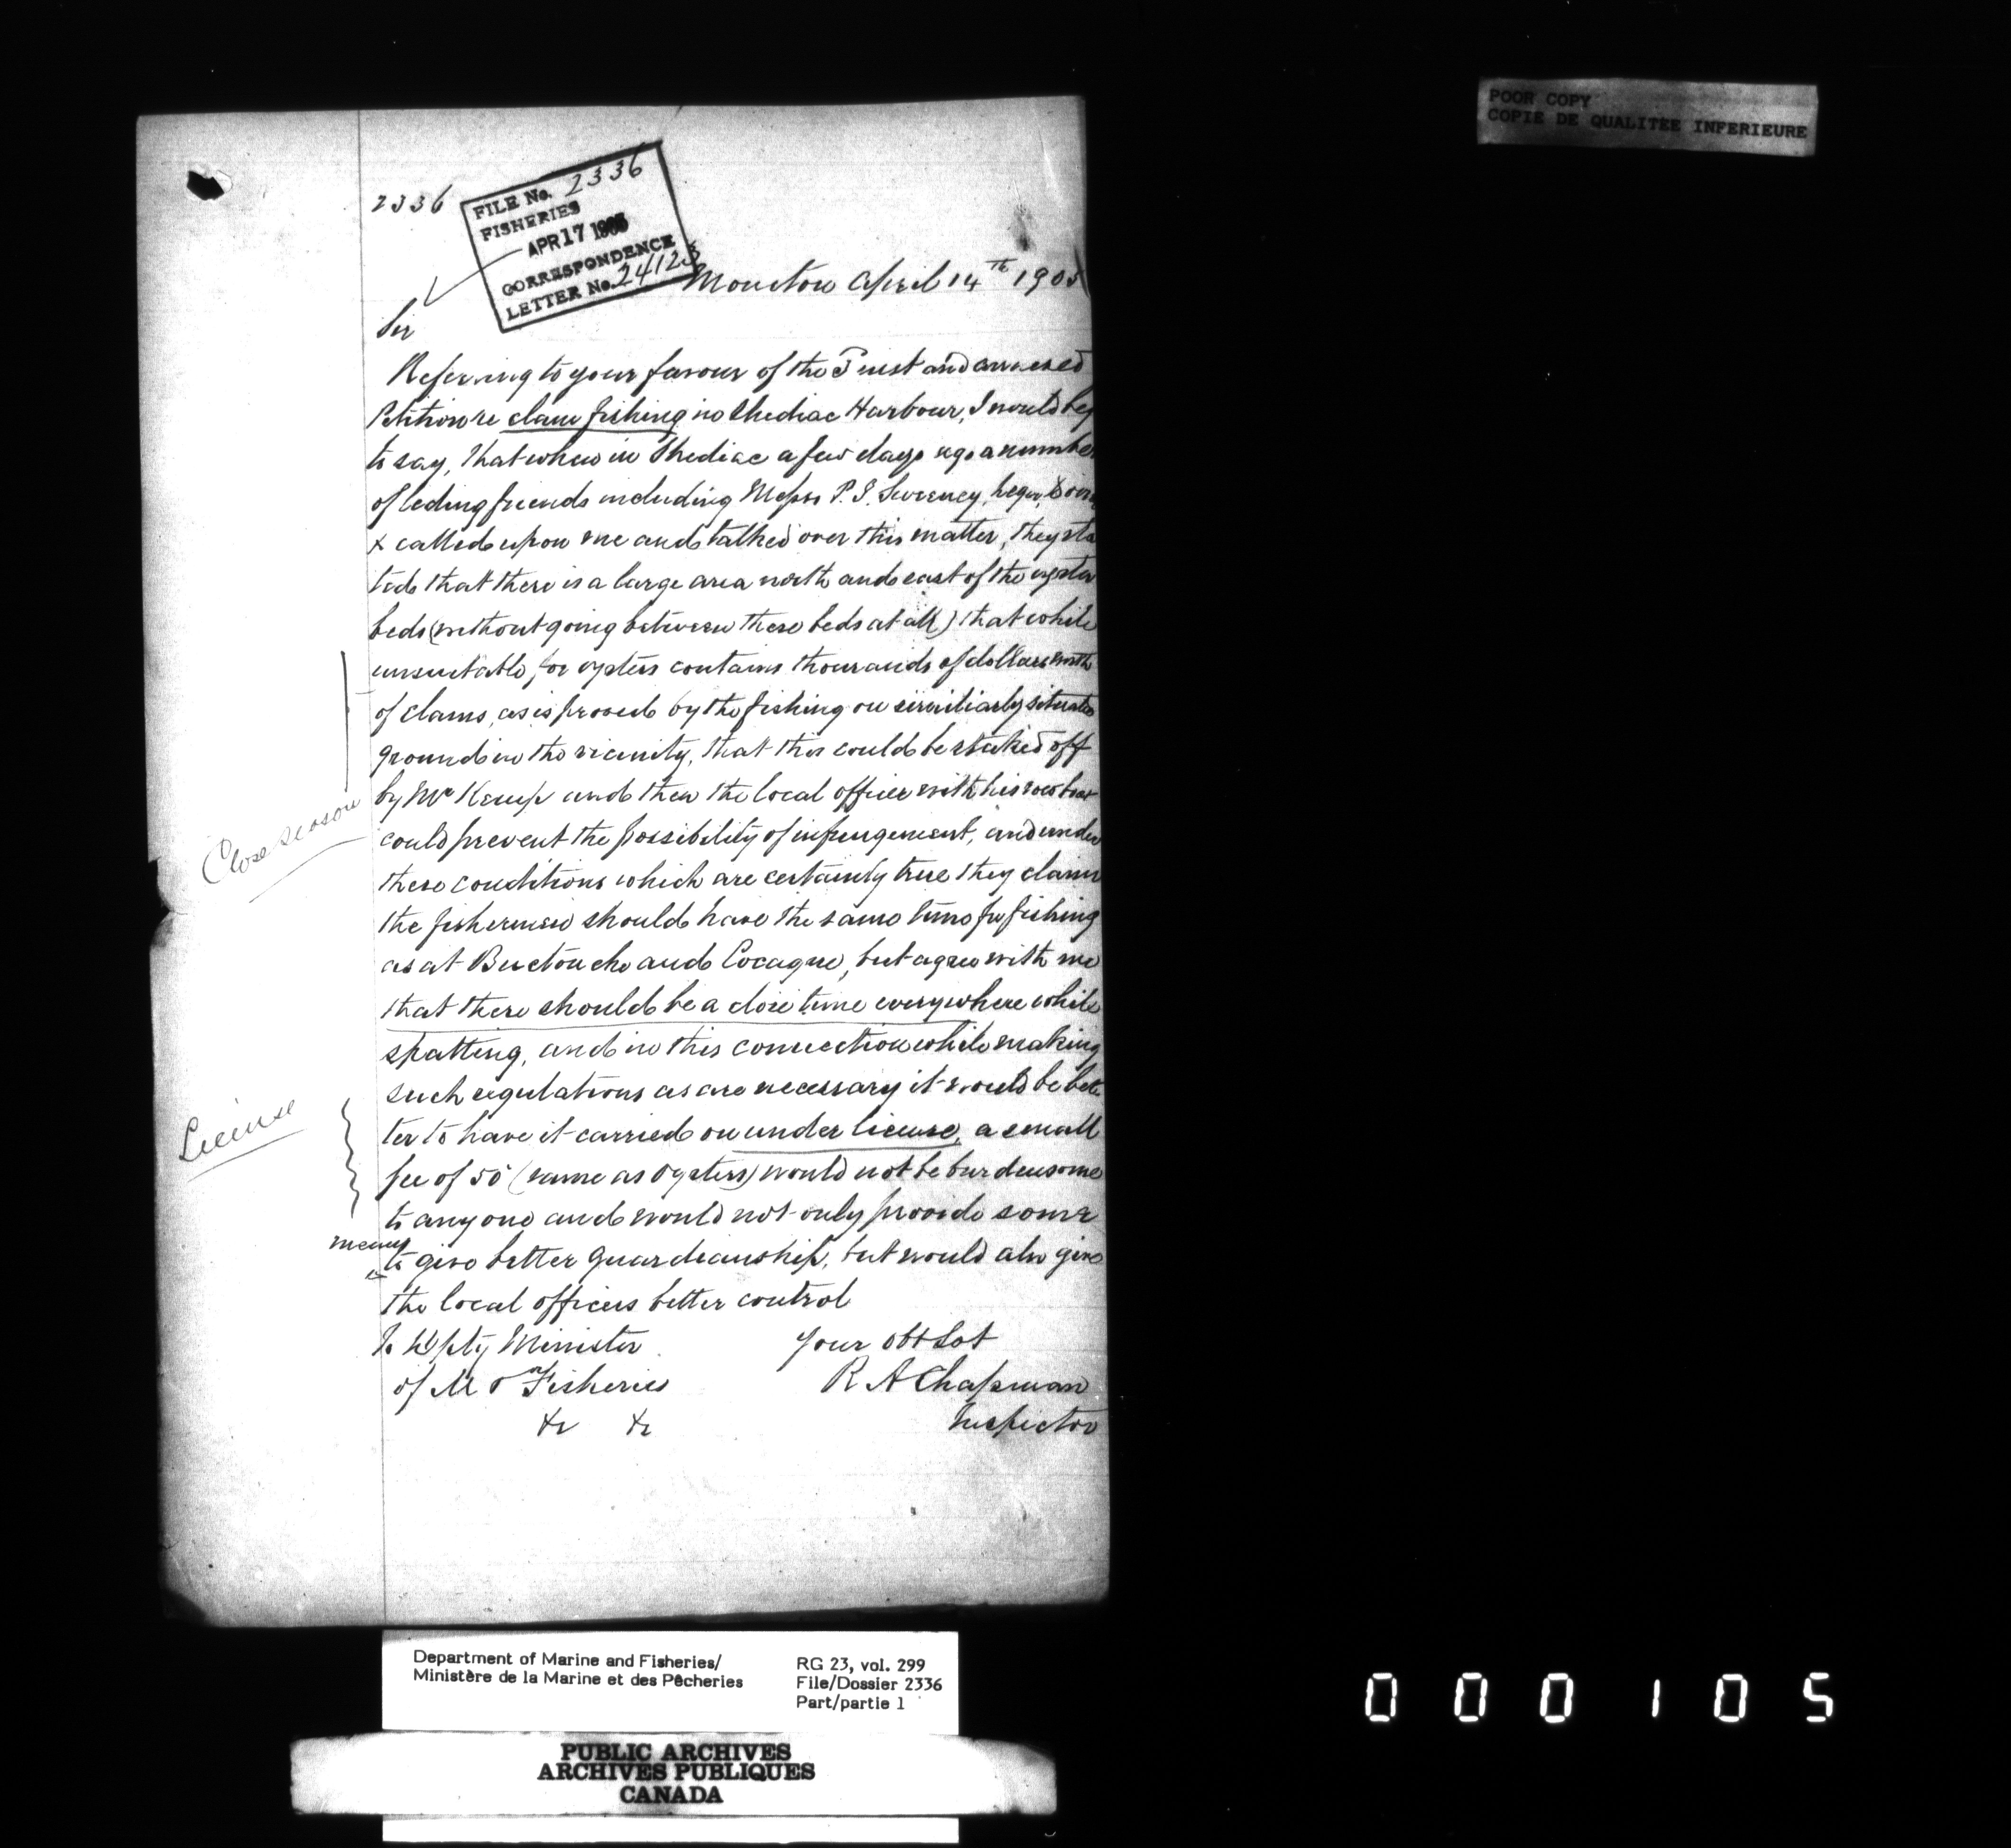 POOR COPY
COPIE DE QUALITEE INFERIEURE
2336
FILE No. 2336
FISHERIES
APR 17 1905
CORRESPONDENCE
LETTER No. 24123
Moncton April 14th 1905
Sir
Referring to your favour of the inst and annexed
Petition re clam fishing in Shediac Harbour, I would beg
to say, that when in Shediac a few days ago a number
of leding friends including Messrs P. J. Sweeney,
& called upon me and talked over this matter, they sta
ted that there is a large area north and east of the oyster
beds (without going between these beds at all) that while
unsuitable for oysters contains thousands of dollars worth
of clams, as is proved by the fishing on similiarly situated
ground in the vicinity, that this could be staked off
by Mr Kemp and then the local officer with his row boat
could prevent the possibility of infringement, and under
these conditions which are certainly true they claim
the fishermen should have the same time for fishing
as at Buctouche and Cocagne, but agree with me
that there should be a close time everywhere while
spatting, and in this connection while making
such regulations as are necessary it would be bet
ter to have it carried on under license, a small
fee of 50 (same as oysters) would not be burdensome
to anyone and would not only provide some
means
to give better guardianship, but would also give
the local officers better control
To Dpty Minister
of M & Fisheries
&c &c
Your obt Svt
R A Chapman
Inspector
Close season
License
Department of Marine and Fisheries/
Ministère de la Marine et des Pêcheries
RG 23, vol. 299
File/Dossier 2336
Part/partie 1
PUBLIC ARCHIVES
ARCHIVES PUBLIQUES
CANADA
000105